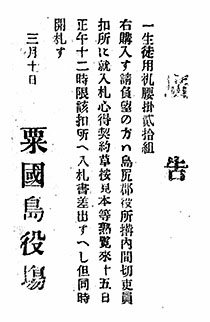 廣告
一生徒用机腰掛貳拾組
右購入す請負望の方ハ島尻郡役所搆內間切吏員
扣所に就入札心得契約草按見本等熟覽來十五日
正午十二時限該扣所へ入札書差出すへし但同時
開札す
三月十日
粟國島役塲